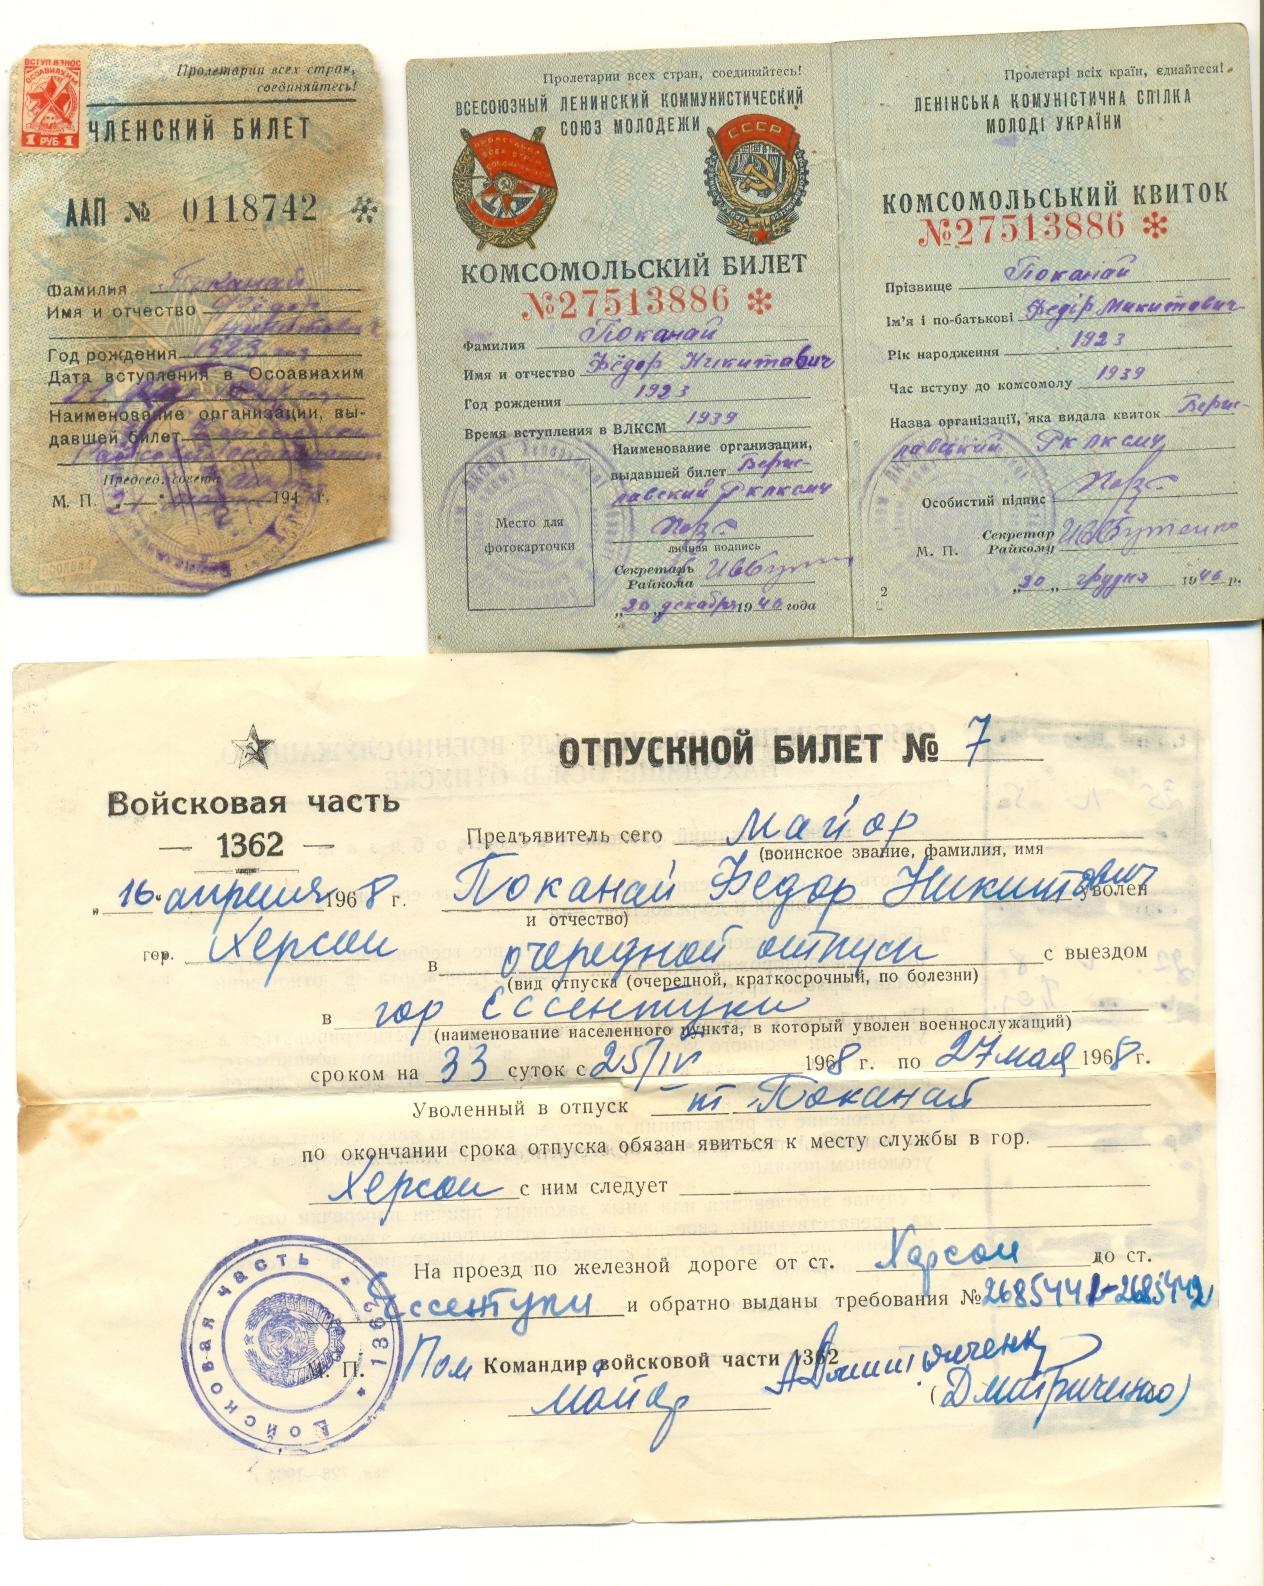 ВСТУП ВЗНОС
ОСОАВИАХИМ
1 РУБ 1
Пролетарии всех стран,
соединяйтесь!
ЧЛЕНСКИЙ БИЛЕТ
ААП № 0118742
Фамилия Поканай
Имя и отчество Фёдор
Никитович
Год рождения 1923
Дата вступления в Осоавиахим
Наименование организации, вы-
давшей билет
Председ. совета
М. П. 194 г.
Пролетарии всех стран, соединяйтесь!
ВСЕСОЮЗНЫЙ ЛЕНИНСКИЙ КОММУНИСТИЧЕСКИЙ
СОЮЗ МОЛОДЕЖИ
СССР
КОМСОМОЛЬСКИЙ БИЛЕТ
№27513886
Фамилия Поканай
Имя и отчество Фёдор Никитович
Год рождения 1923
Время вступления в ВЛКСМ 1939
Наименование организации,
выдавшей билет Берис-
лавский РК ЛКСМУ
Место для
фотокарточки
личная подпись
Секретарь
Райкома
„20„ декабря 1946 года
Пролетарі всіх країн, єднайтеся!
ЛЕНІНСЬКА КОМУНІСТИЧНА СПІЛКА
МОЛОДІ УКРАЇНИ
КОМСОМОЛЬСЬКИЙ КВИТОК
№27513886
Прізвище Поканай
Ім'я і по-батькові Федір Микитович
Рік народження 1923
Час вступу до комсомолу 1939
Назва організації, яка видала квиток Берис-
лавський РК ЛКСМУ
Особистий підпис
М. П. Секретар
Райкому
„20„ грудня 1946 р.
2
ОТПУСКНОЙ БИЛЕТ № 7
Войсковая часть
— 1362 —
„16" апреля 1968 г.
гор. Херсон
Предъявитель сего майор
(воинское звание, фамилия, имя
Поканай Федор Никитович уволен
и отчество)
в очередной отпуск с выездом
(вид отпуска (очередной, краткосрочный, по болезни)
в гор Ессентуки
(наименование населенного пункта, в который уволен военнослужащий)
сроком на 33 суток с 25/IV 1968 г. по 27 мая 1968 г.
Уволенный в отпуск т. Поканай
по окончании срока отпуска обязан явиться к месту службы в гор.
Херсон с ним следует
На проезд по железной дороге от ст. Херсон до ст.
Ессентуки и обратно выданы требования № 2685441-2685442
М. П. Пом Командир войсковой части 1362
майор (Дмитриченко)
Войсковая часть * 1362 *